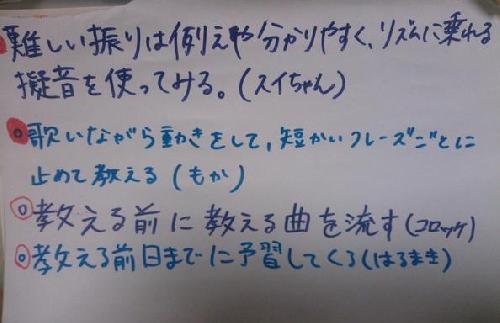 難しい振りは例えや分かりやすく、リズムに乗れる
擬音を使ってみる。(スイちゃん)
歌いながら動きをして、短かいフレーズごとに
止めて教える(もか)
教える前に教える曲を流す(コロッケ)
教える前日までに予習してくる(はるまき)